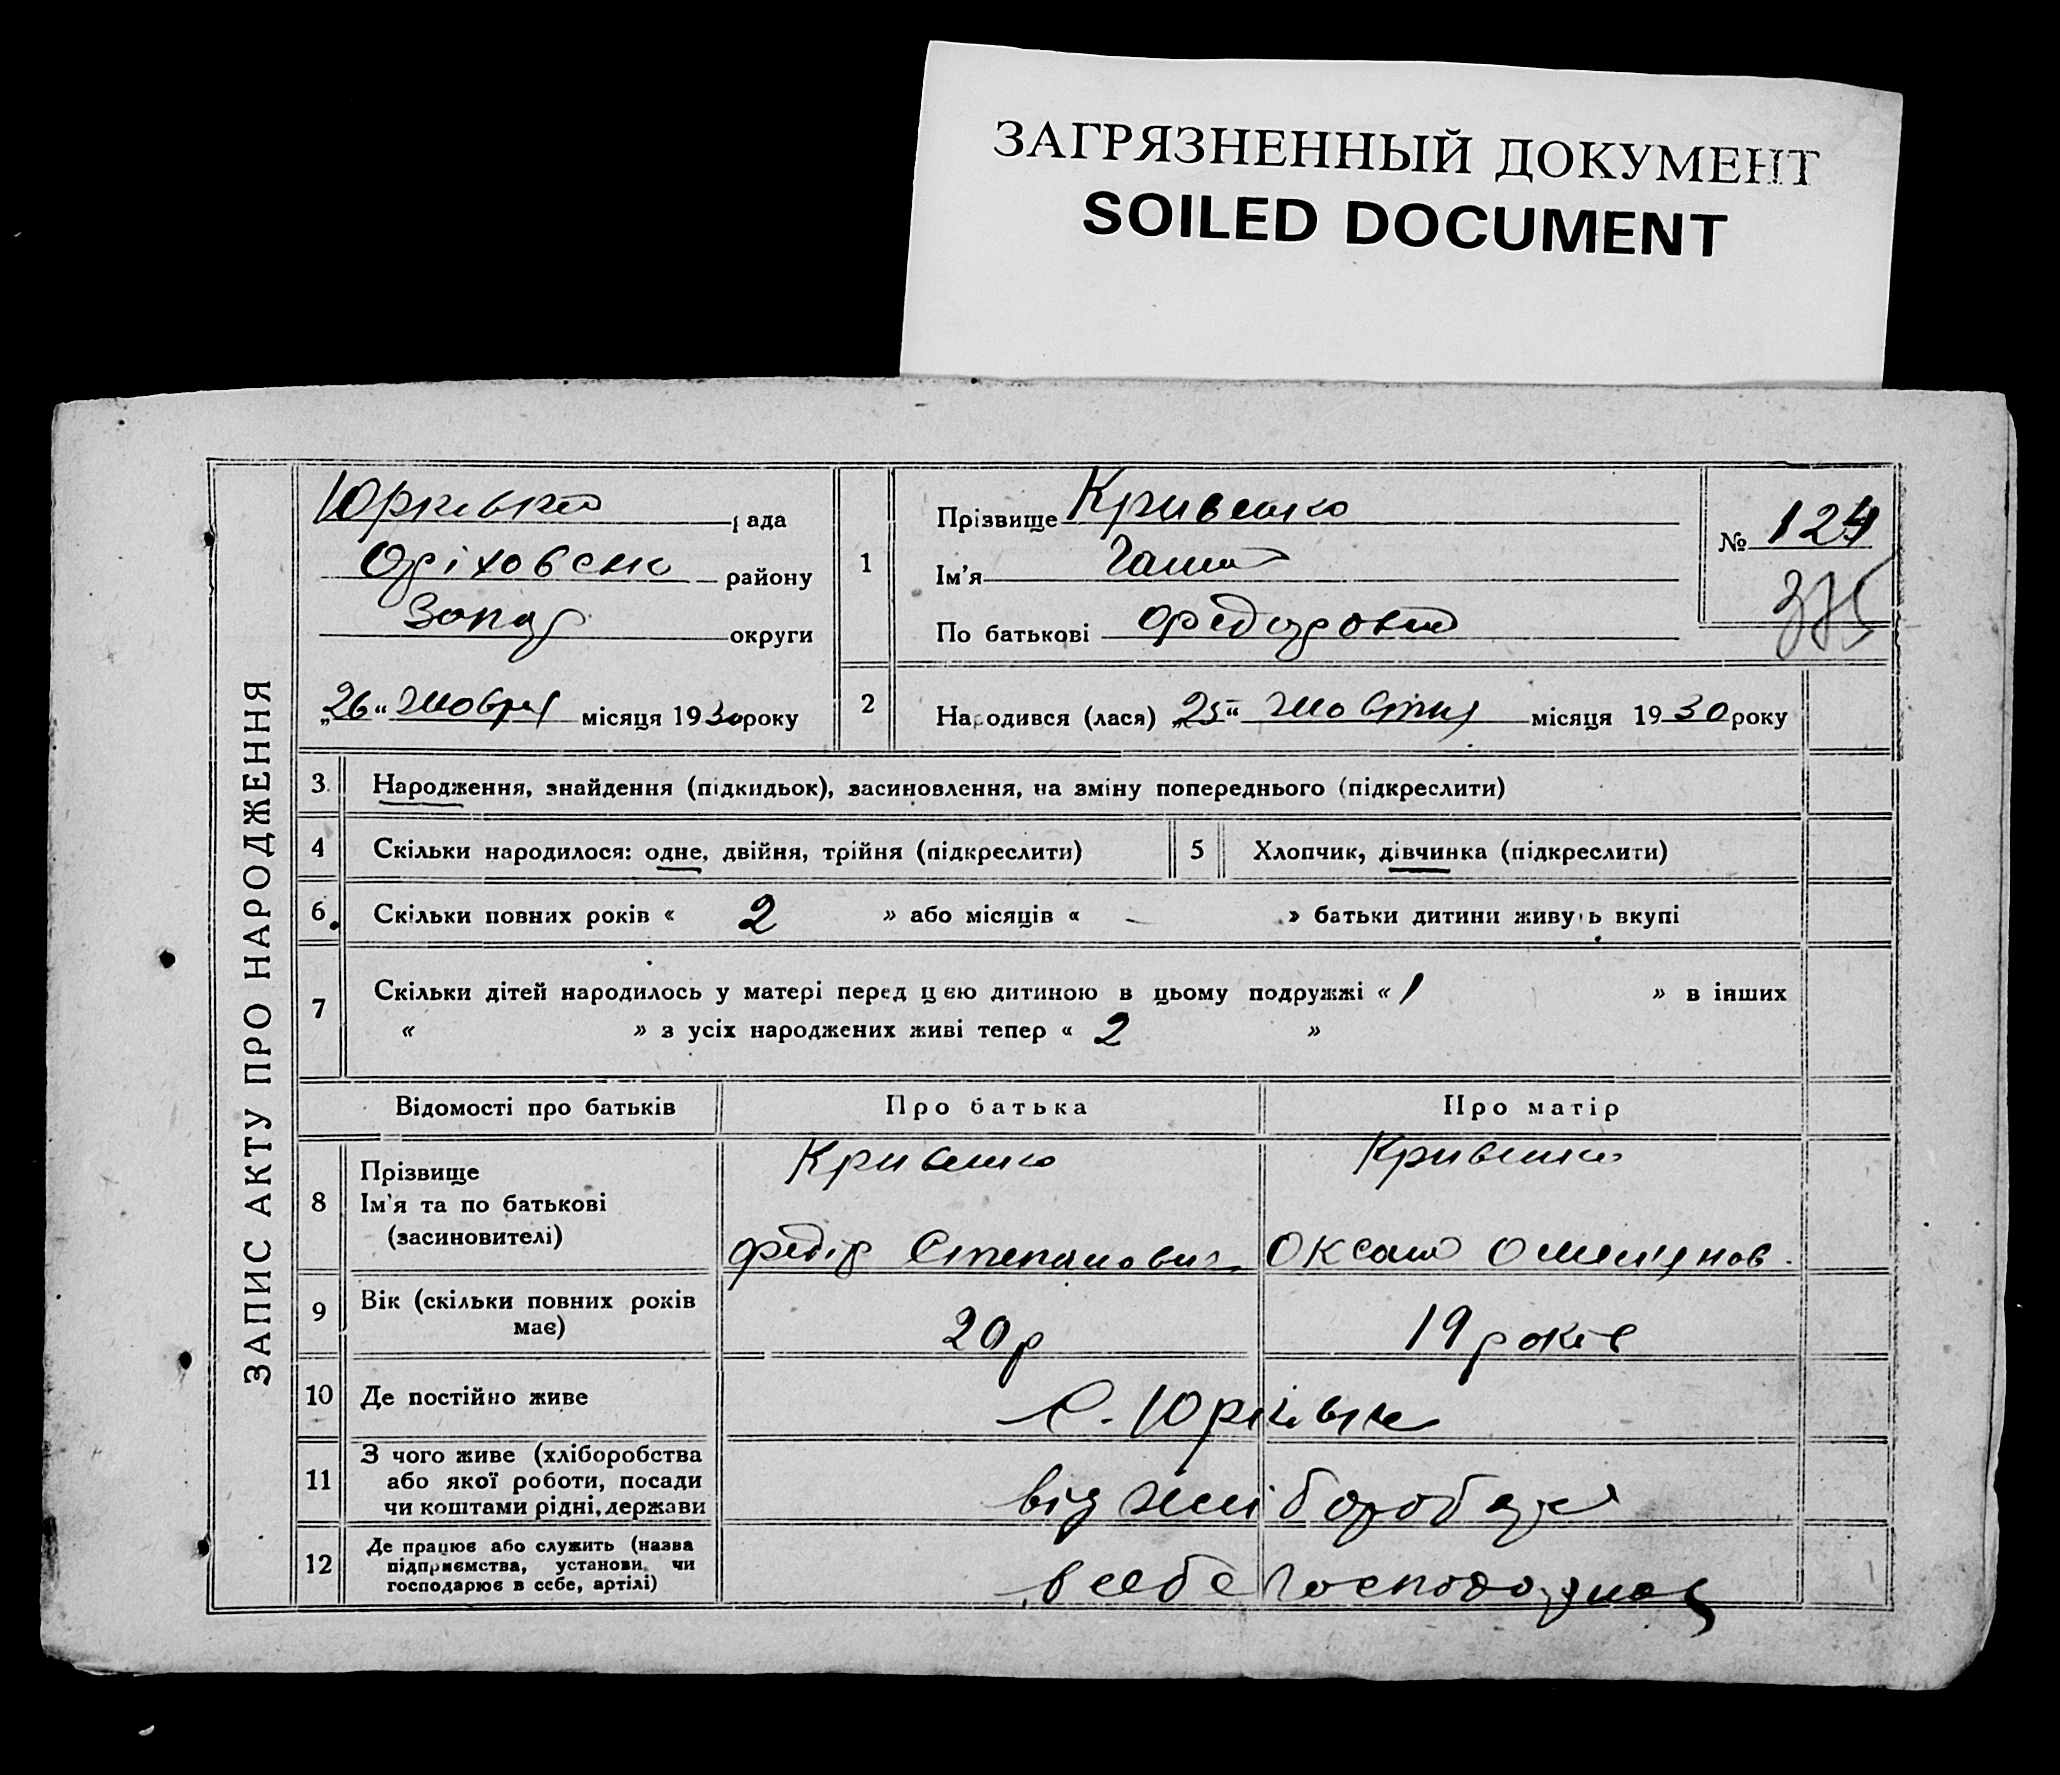 ЗАГРЯЗНЕННЫЙ ДОКУМЕНТ
SOILED DOCUMENT
ЗАПИС АКТУ ПРО НАРОДЖЕННЯ
Юрківська рада
Оріховськ району
Запор округи
„26“ жовтня місяця 1930 року
1
Прізвище Кривенко
Ім'я Ганна
По батькові Федоровна
№ 124
375
2
Народився (лася) „25“ жовтня місяця 1930 року
3 Народження, знайдення (підкидьок), засиновлення, на зміну попереднього (підкреслити)
4 Скільки народилося: одне, двійня, трійня (підкреслити)
5 Хлопчик, дівчинка (підкреслити)
6 Скільки повних років « 2 » або місяців « – » батьки дитини живуть вкупі
7 Скільки дітей народилось у матері перед цєю дитиною в цьому подружжі « 1 » в інших
« » з усіх народжених живі тепер « 2 »
Відомості про батьків Про батька Про матір
8 Прізвище
Ім'я та по батькові
(засиновителі)
Кривенко
Федір Степанович
Кривенко
Оксана Омелянов.
9 Вік (скільки повних років
має)
20 р
19 років
10 Де постійно живе
с. Юрківка
11 З чого живе (хліборобства
або якої роботи, посади
чи коштами рідні, держави
від хлібороб
12 Де працює або служить (назва
підприємства, установи, чи
господарює в себе, артілі)
в себе